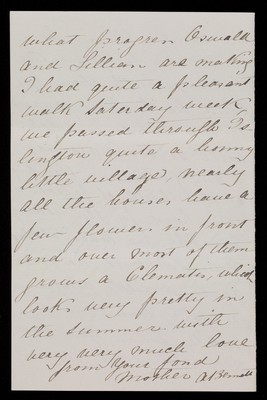 what progress Oswald
and Lillian are making
I had quite a pleasant
walk Saturday week
we passed through Is
lington quite a bonny
little village, nearly
all the houses have a
few flowers in front
and over most of them
grows a Clematis, which
looks very pretty in
the summer with
very very much love
from your fond
Mother A Bennett